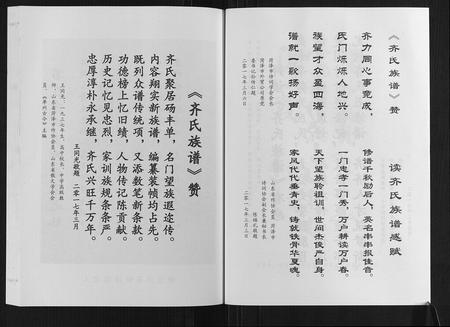 《齐氏族谱》赞
齐力同心事竞成，
氏门炼炼人地兴。
族望才众盈四海，
谱就一歌扬好声。
二〇一七年三月六日
读齐氏族谱感赋
修谱千秋励后人，英名串串报佳音。
一门忠孝一门秀，万户耕读万户春。
天下望族验祖训，世间杰俊严自身。
家风代代垂青史，铸就铁骨华夏魂。
二〇一七年三月三日
《齐氏族谱》赞
齐氏聚居砀丰单，名门望族遐迩传。
内容翔实新族谱，编纂装帧均占先。
既列众谱传统项，又添数笔新条款。
功德榜上忆旧绩，人物传记陈贡献。
历史记忆见忠烈，家训族规条条严。
忠厚淳朴永承继，齐氏兴旺千万年。
王同光敬题 二零一七年三月